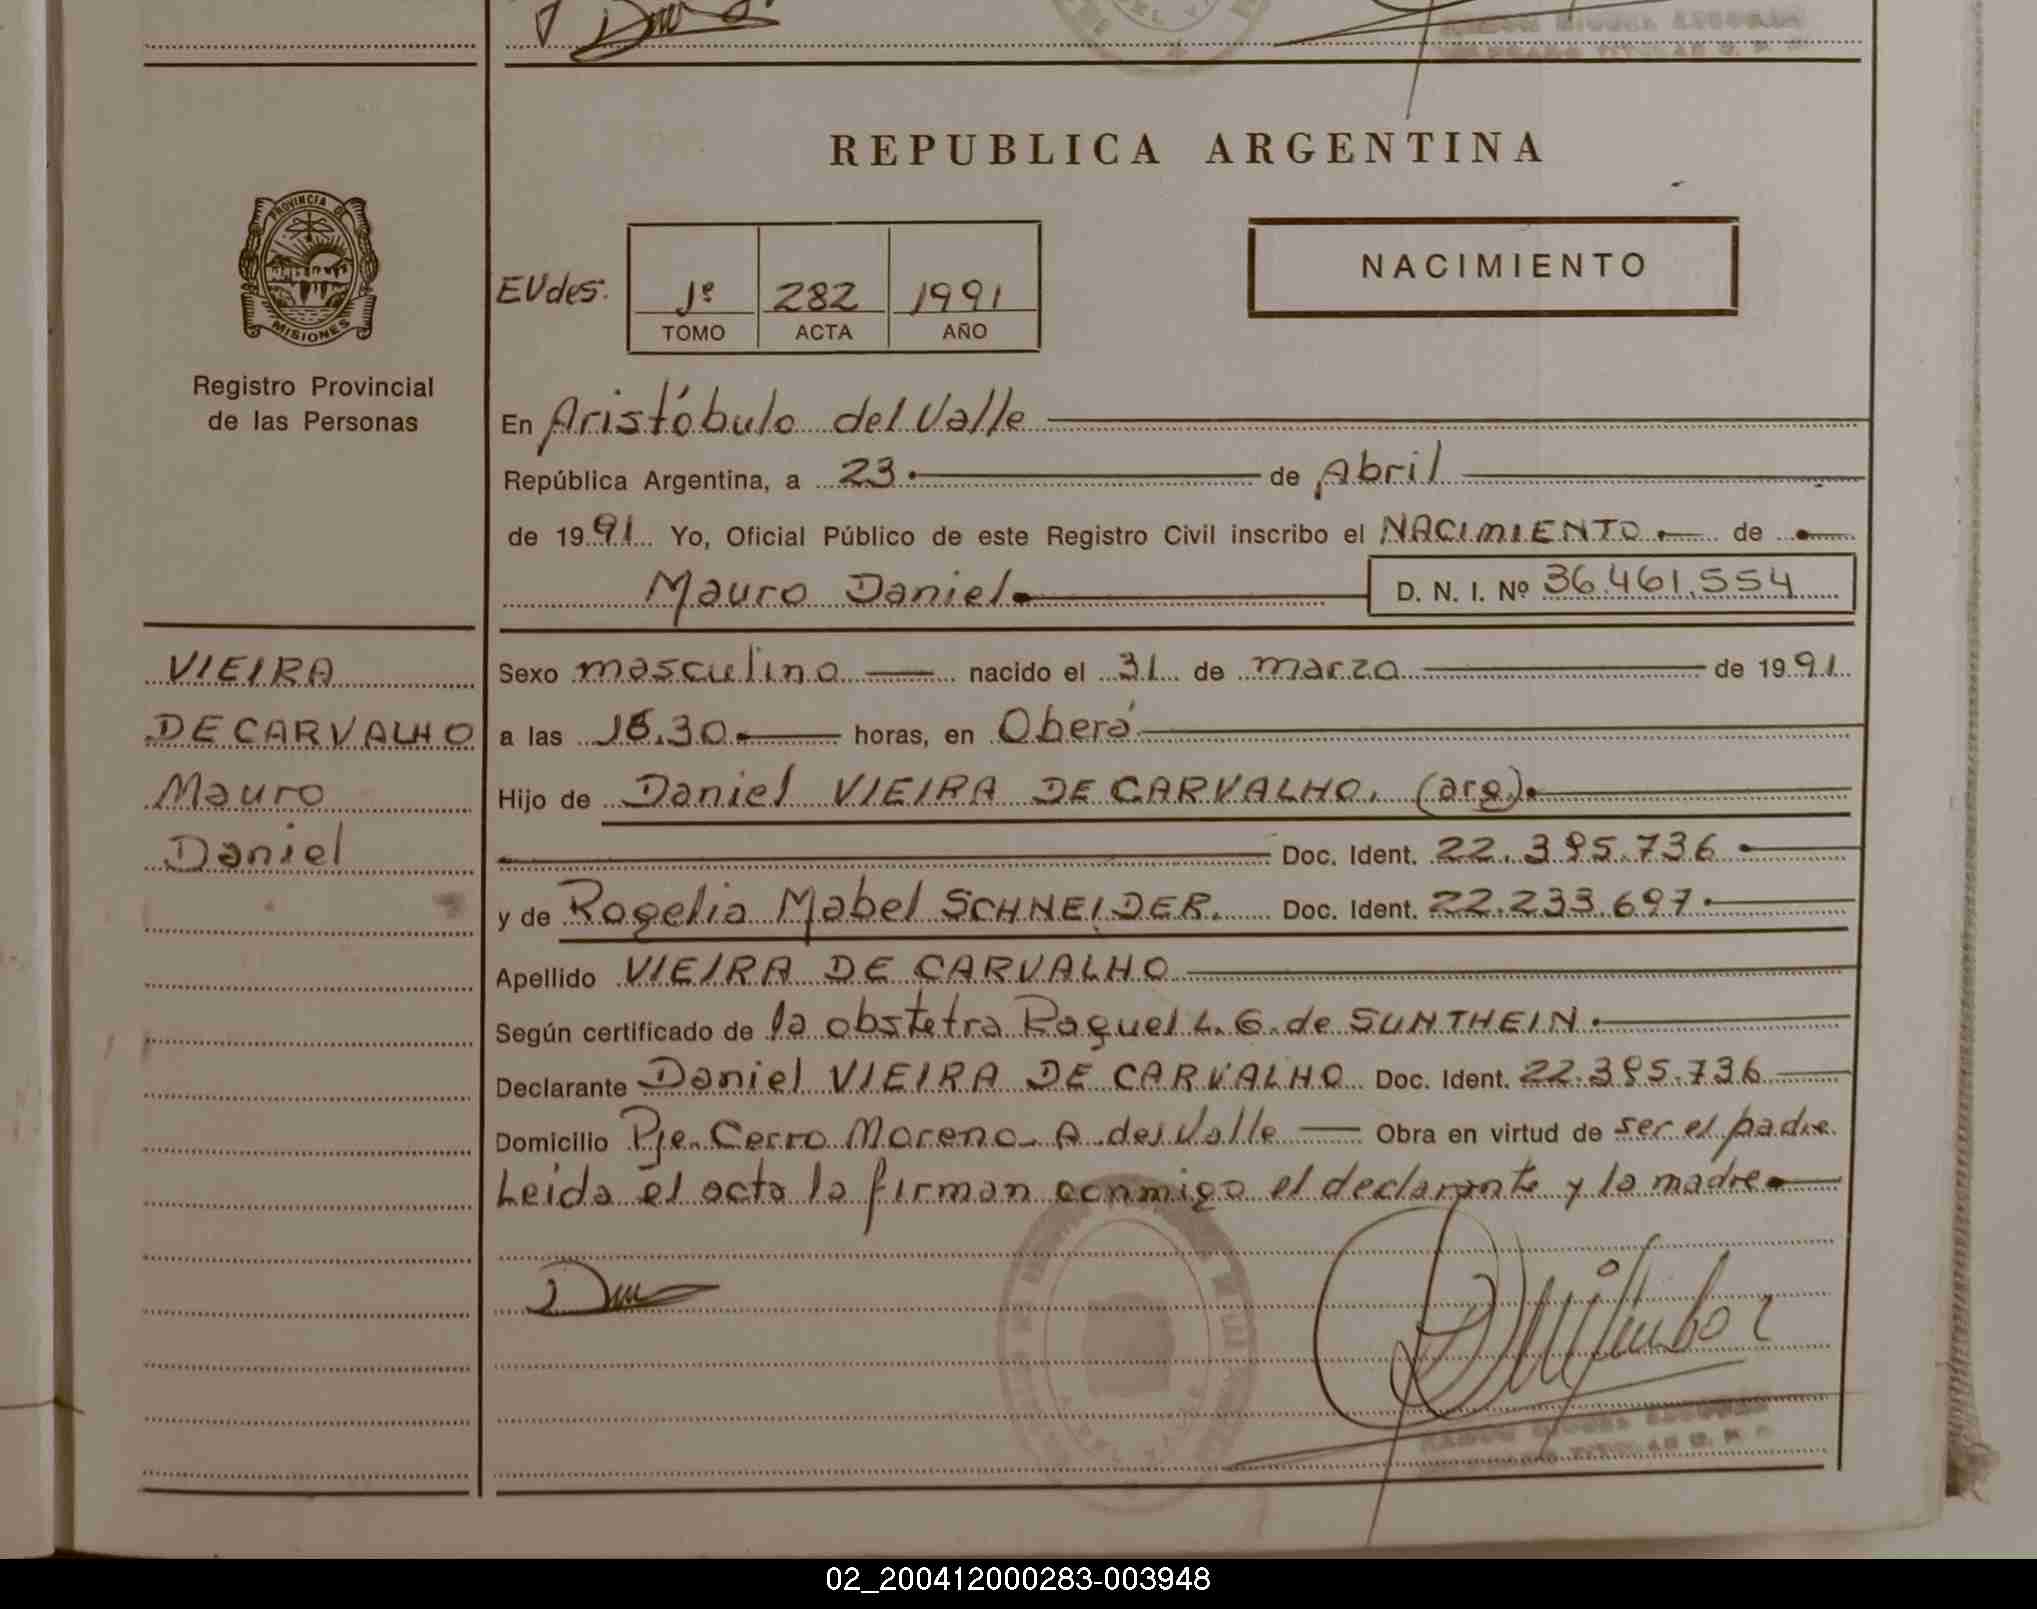 REPUBLICA ARGENTINA
PROVINCIA DE
MISIONES
Registro Provincial
de las Personas
EVdes.
1º 282 1991
TOMO ACTA AÑO
NACIMIENTO
En Aristóbulo del Valle
República Argentina, a 23 de Abril
de 1991 Yo, Oficial Público de este Registro Civil inscribo el NACIMIENTO de
Mauro Daniel D. N. I. Nº 36.461.554
VIEIRA
DE CARVALHO
Mauro
Daniel
Sexo masculino nacido el 31 de marzo de 1991
a las horas, en Oberá
Hijo de Daniel VIEIRA DE CARVALHO. (arg).
Doc. Ident. 22.395.736
y de Rogelia Mabel SCHNEIDER. Doc. Ident. 22.233.697
Apellido VIEIRA DE CARVALHO
Según certificado de la obstetra Raquel L. G. de SUNTHEIN.
Declarante Daniel VIEIRA DE CARVALHO Doc. Ident. 22.395.736
Domicilio Pje. Cerro Moreno. A. del Valle Obra en virtud de ser el padre.
Leida el acta la firman conmigo el declarante y la madre
02_200412000283-003948